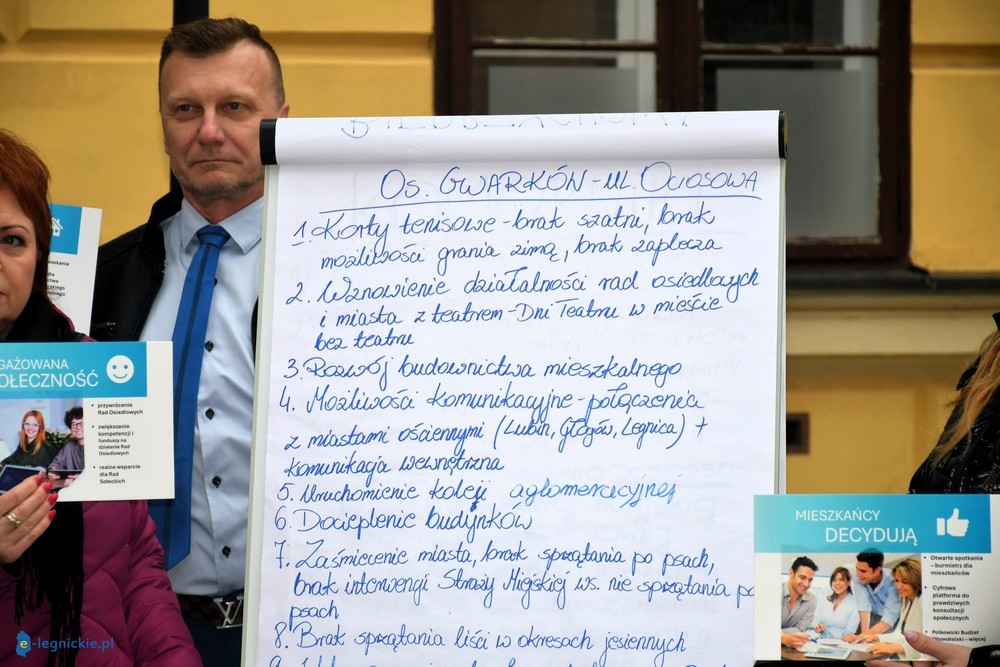 Os. GWARKÓW - ul. OCIOSOWA
1. Korty tenisowe - brak szatni, brak
możliwości grania zimą, brak zaplecza
2. Wznowienie działalności rad osiedlowych
i miasta z teatrem - Dni Teatru w mieście
bez teatru
3. Rozwój budownictwa mieszkalnego
4. Możliwości komunikacyjne - połączenia
z miastami ościennymi (Lubin, Głogów, Legnica) +
komunikacja wewnętrzna
5. Uruchomienie kolei aglomeracyjnej
6. Docieplenie budynków
7. Zaśmiecenie miasta, brak sprzątania po psach,
brak interwencji Straży Miejskiej ws. nie sprzątania po
psach
8. Brak sprzątania liści w okresach jesiennych
GAŻOWANA
OŁECZNOŚĆ
• przywrócenie
Rad Osiedlowych
• zwiększenie
kompetencji i
funduszy na
działanie Rad
Osiedlowych
• realne wsparcie
dla Rad
Sołeckich
MIESZKAŃCY
DECYDUJĄ
• Otwarte spotkania
– burmistrz dla
mieszkańców
• Cyfrowa
platforma do
prawdziwych
konsultacji
społecznych
• Polkowicki Budżet
Obywatelski – więcej
e-legnickie.pl